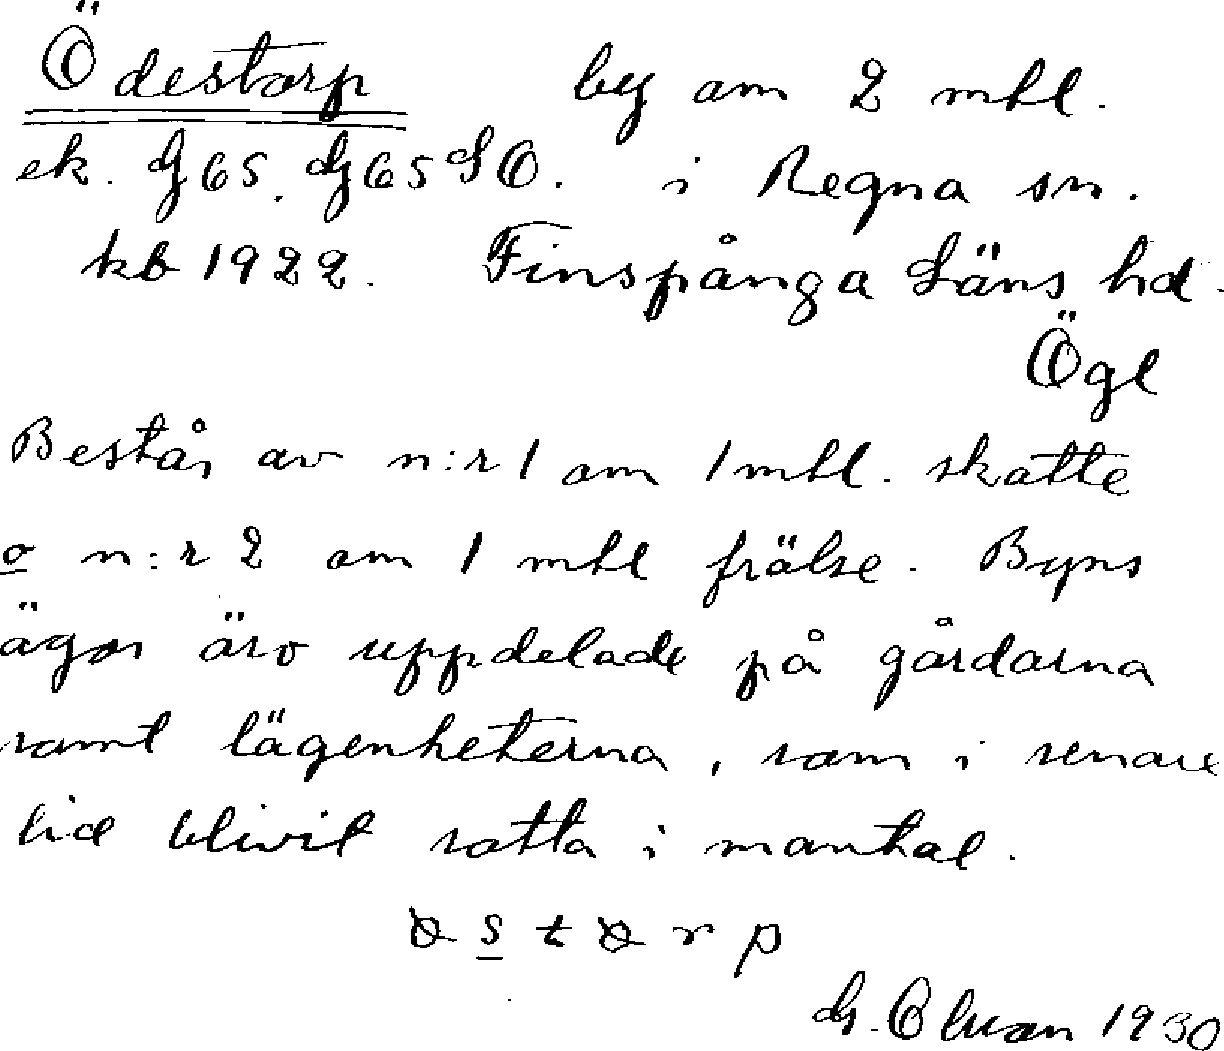 Ödestorp by om 2 mtl.
ek. G65. G65SO. i Regna sn.
kb 1922. Finspånga Läns hd.
Ögl
Består av n:r 1 om 1 mtl. skatte
o n:r 2 om 1 mtl frälse. Byns
ägor äro uppdelade på gårdarna
samt lägenheterna, som i senare
tid blivit satta i mantal.
s t r p
G. 1930